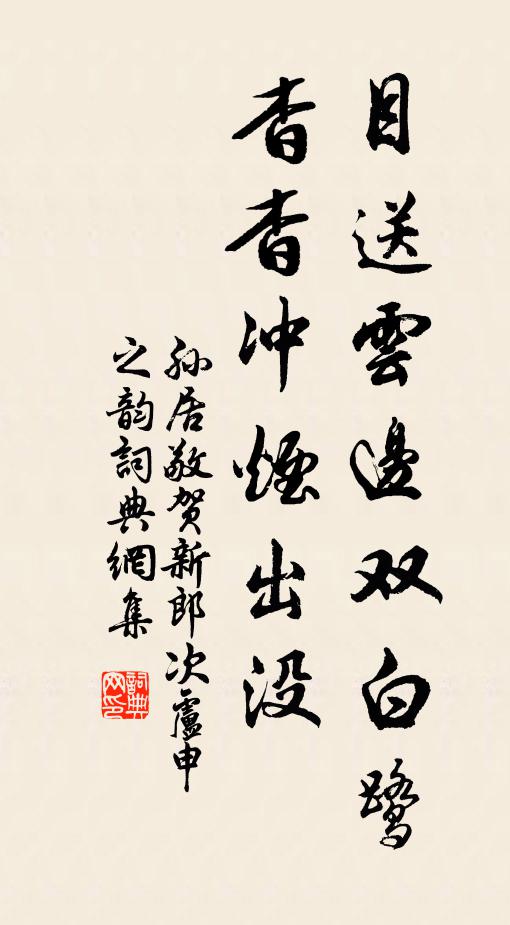 目送雲邊双白鹭
杳杳冲煙出没
孙居敬贺新郎次盧申
之韵詞典網集
詞典
网印